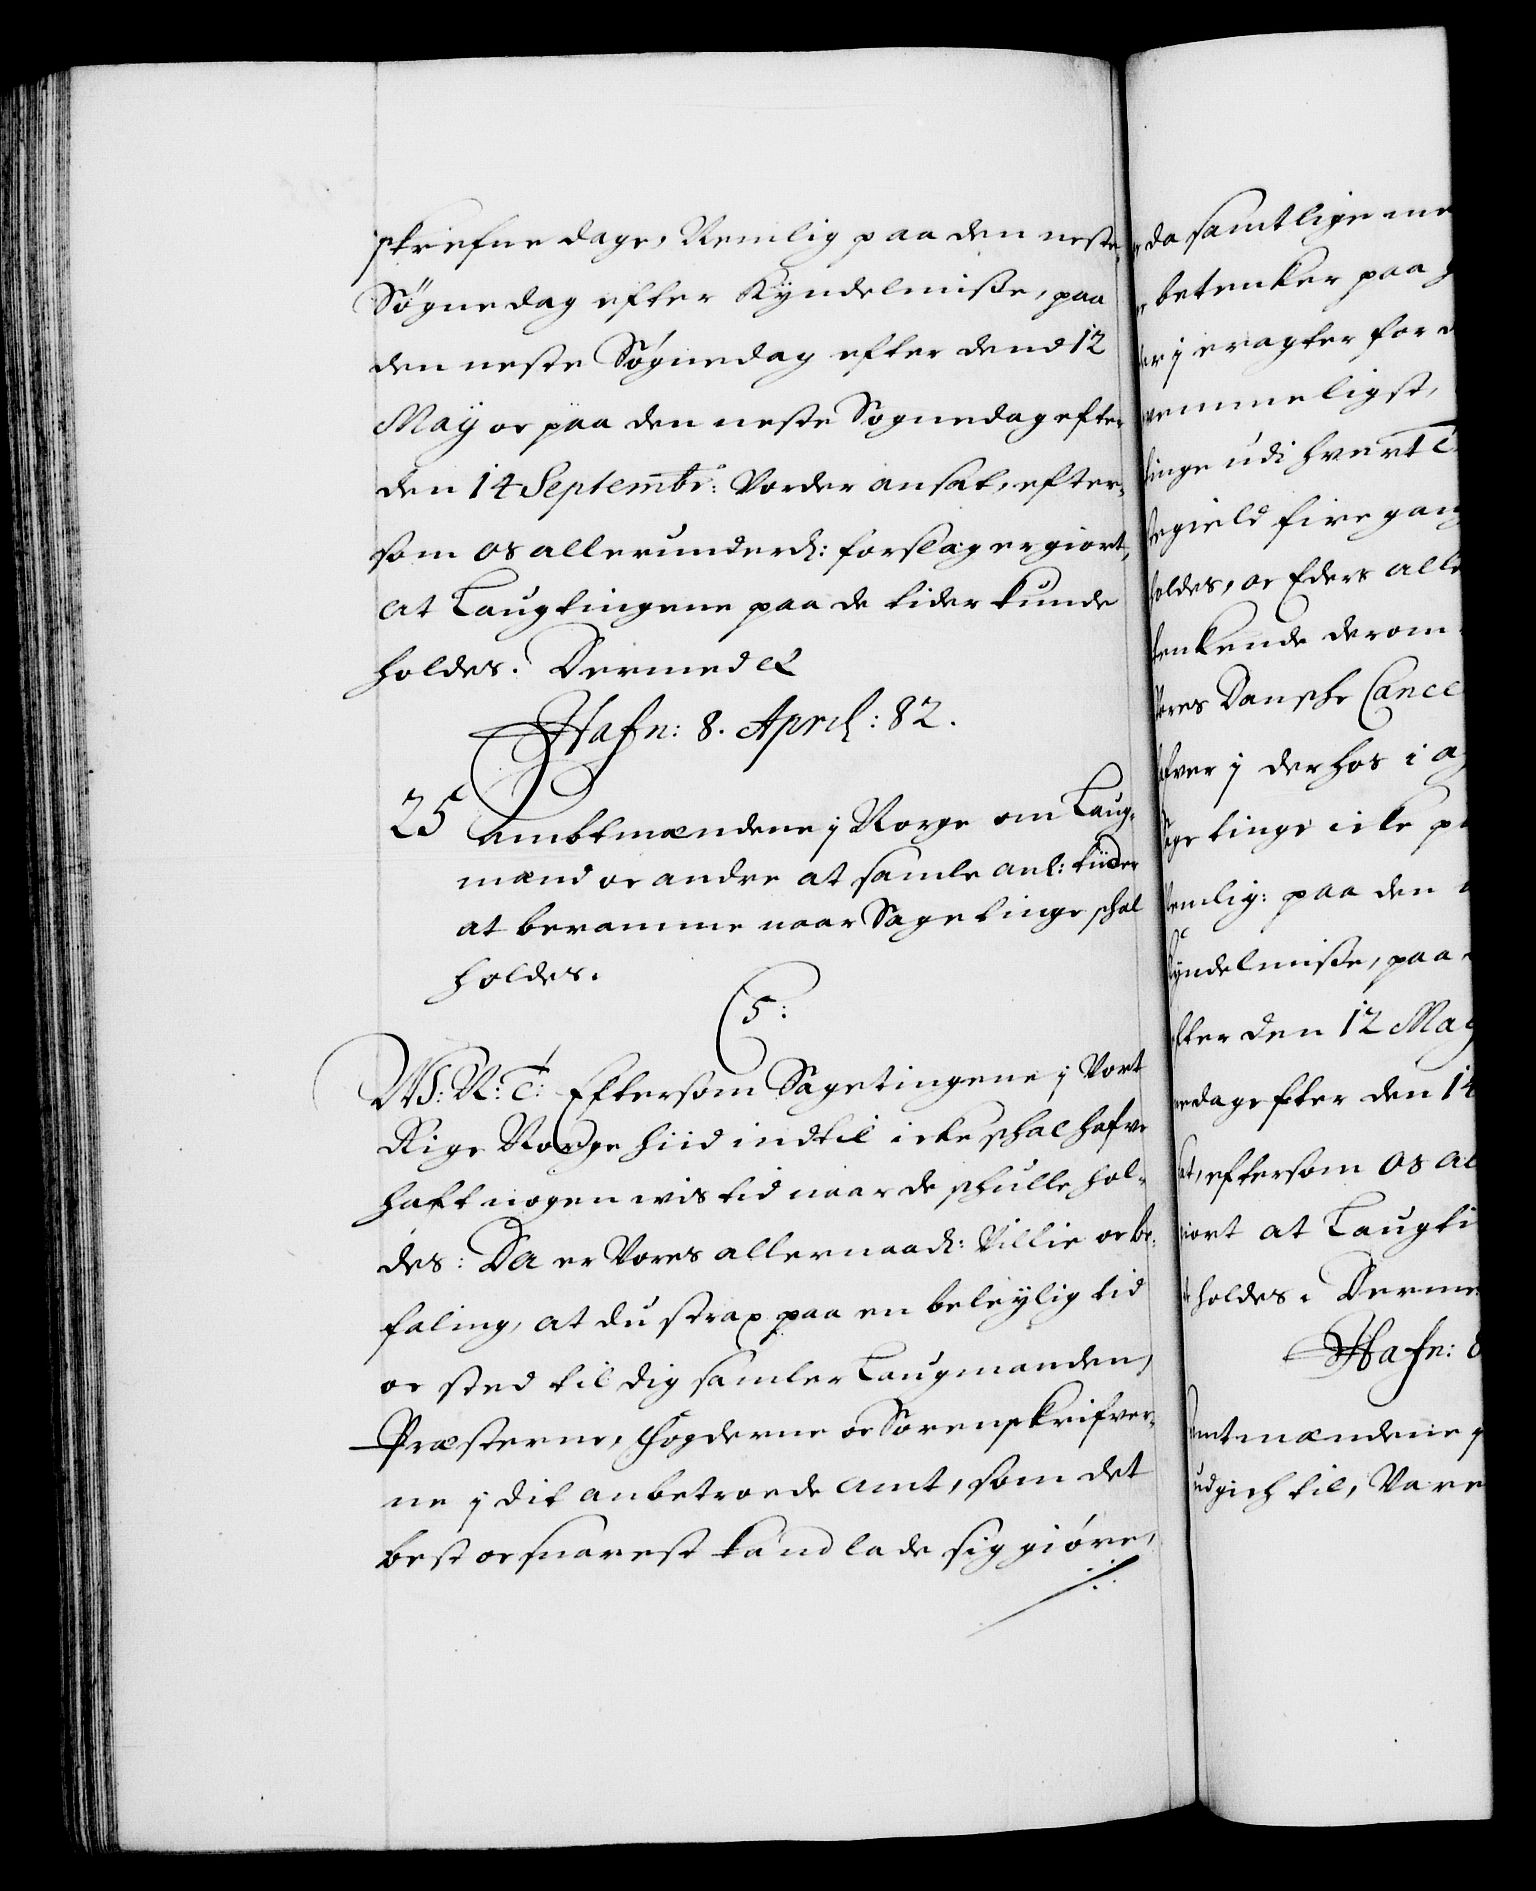 skrefne dage, Nemlig paa den neste
Søgnedag efter Kyndelmisse, paa
den neste Søgnedag efter dend 12
May oc paa den neste Søgnedag efter
den 14 Septembr: Vorder ansat, efter-
som os allerunderd: forslag er giort,
at Laugtingene paa de tider kunde
holdes. Dermed etc
Hafn: 8. April: 82.
25 Ambtmændene j Norge om Laug-
mænd oc andre at samle anl: tiider
at beramme naar Sagetinge schal
holdes.
C5:
W: G: T: Eftersom Sagetingene j Vort
Rige Norge hiid indtil icke schal hafve
haft nogen wis tid naar de schulle hol-
des: Da er Vores allernaad: Villie oc be-
faling, at du strax paa en beleylig tid
oc sted til dig samler Laugmanden,
Præsterne, Fogderne oc Sorenskrifver-
ne j dit anbetroede amt, som det
best oc snarest kand lade sig giøre,
da samtlige
betenker paa
j eragter for
nemmeligst,
tinge udi hvert
gield fire gang
holdes, oc Eders alle
tenkende derom
Vores Danske Cancel
hafver j derhos i
Sagetinge icke
Nemlig: paa den
Kyndelmisse, paa
efter den 12 May
nedag efter den 14
sat, eftersom os al
giort at Laugti
holdes. Derme
Hafn: 8
Amtmændene
udgich til, Vare